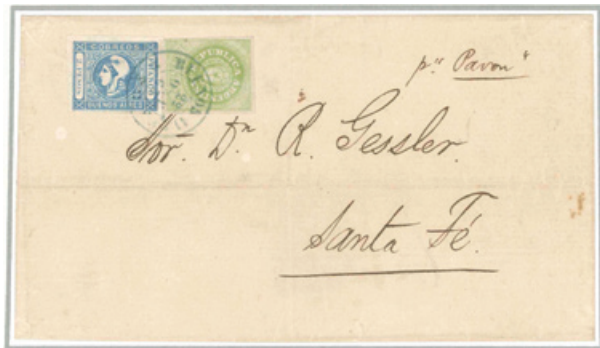 CORREOS
BUENOS AIRES
pr "Pavon"
Sor. Dn R. Gessler.
Santa Fé.